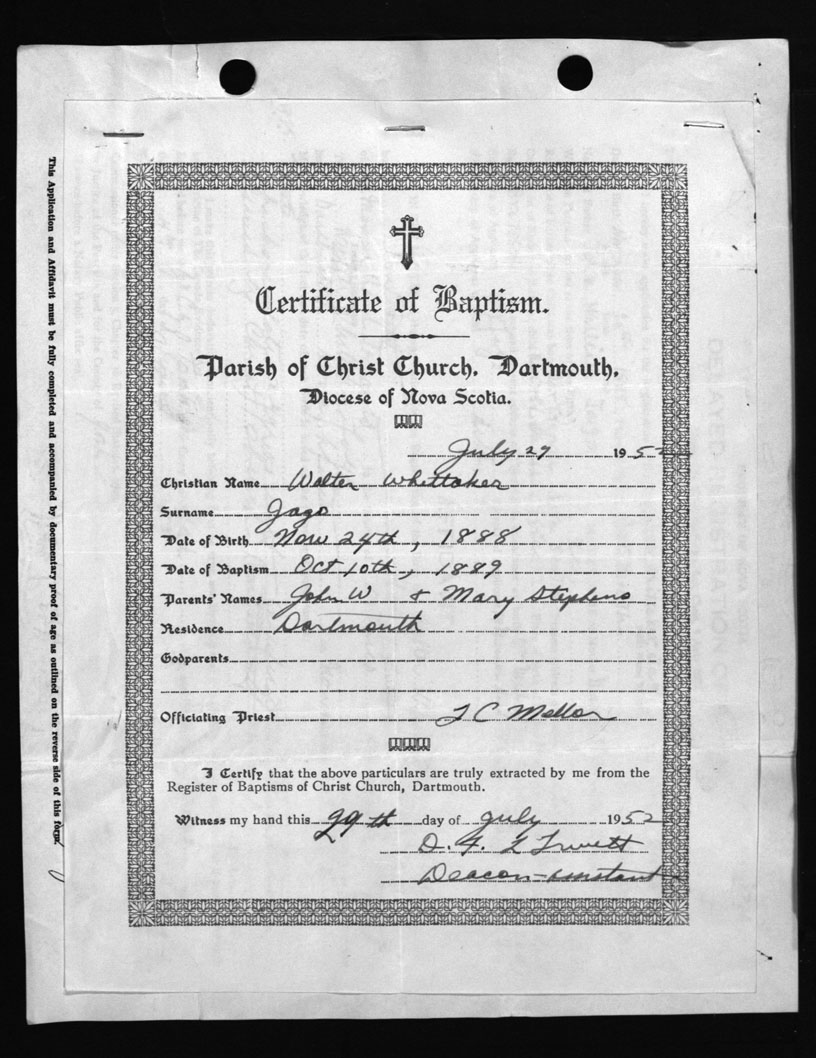 Certificate of Baptism.
Parish of Christ Church, Dartmouth,
Diocese of Nova Scotia.
July 29 1952
Christian Name Walter Whittaker
Surname Jago
Date of Birth Nov 24th, 1888
Date of Baptism Oct 10th, 1889
Parents' Names John W & Mary Stephens
Residence Dartmouth
Godparents
Officiating Priest T C Mellor
I Certify that the above particulars are truly extracted by me from the
Register of Baptisms of Christ Church, Dartmouth.
Witness my hand this 29th day of July 1952
D. F. L Trivett
Deacon-assistant
This Application and Affidavit must be fully completed and accompanied by documentary proof of age as outlined on the reverse side of this form.